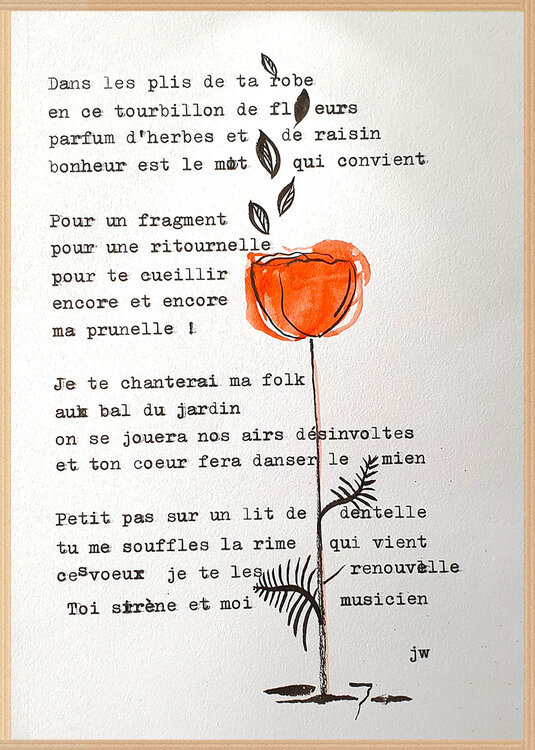 Dans les plis de ta robe
en ce tourbillon de fleurs
parfum d'herbes et de raisin
bonheur est le mot qui convient
Pour un fragment
pour une ritournelle
pour te cueillir
encore et encore
ma prunelle !
Je te chanterai ma folk
aux bal du jardin
on se jouera nos airs désinvoltes
et ton coeur fera danser le mien
Petit pas sur un lit de dentelle
tu me souffles la rime qui vient
ces voeux je te les renouvelle
Toi sirène et moi musicien
jw